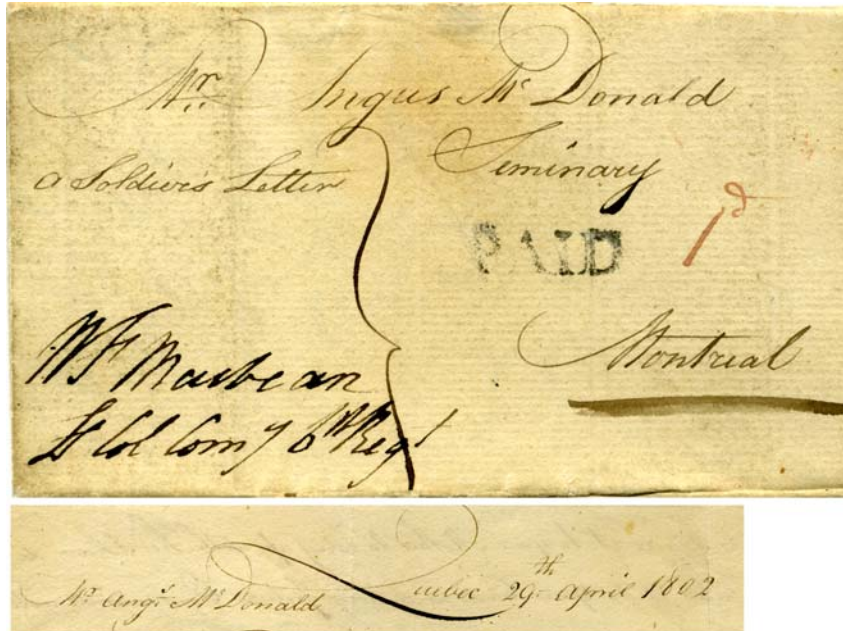 Mr. Angus Mc Donald
Seminary
a Soldier's Letter
PAID 1d
Montreal
W F Macbean
Lt Col Comg 6th Regt
Mr Angs Mc Donald Quebec 29th April 1802